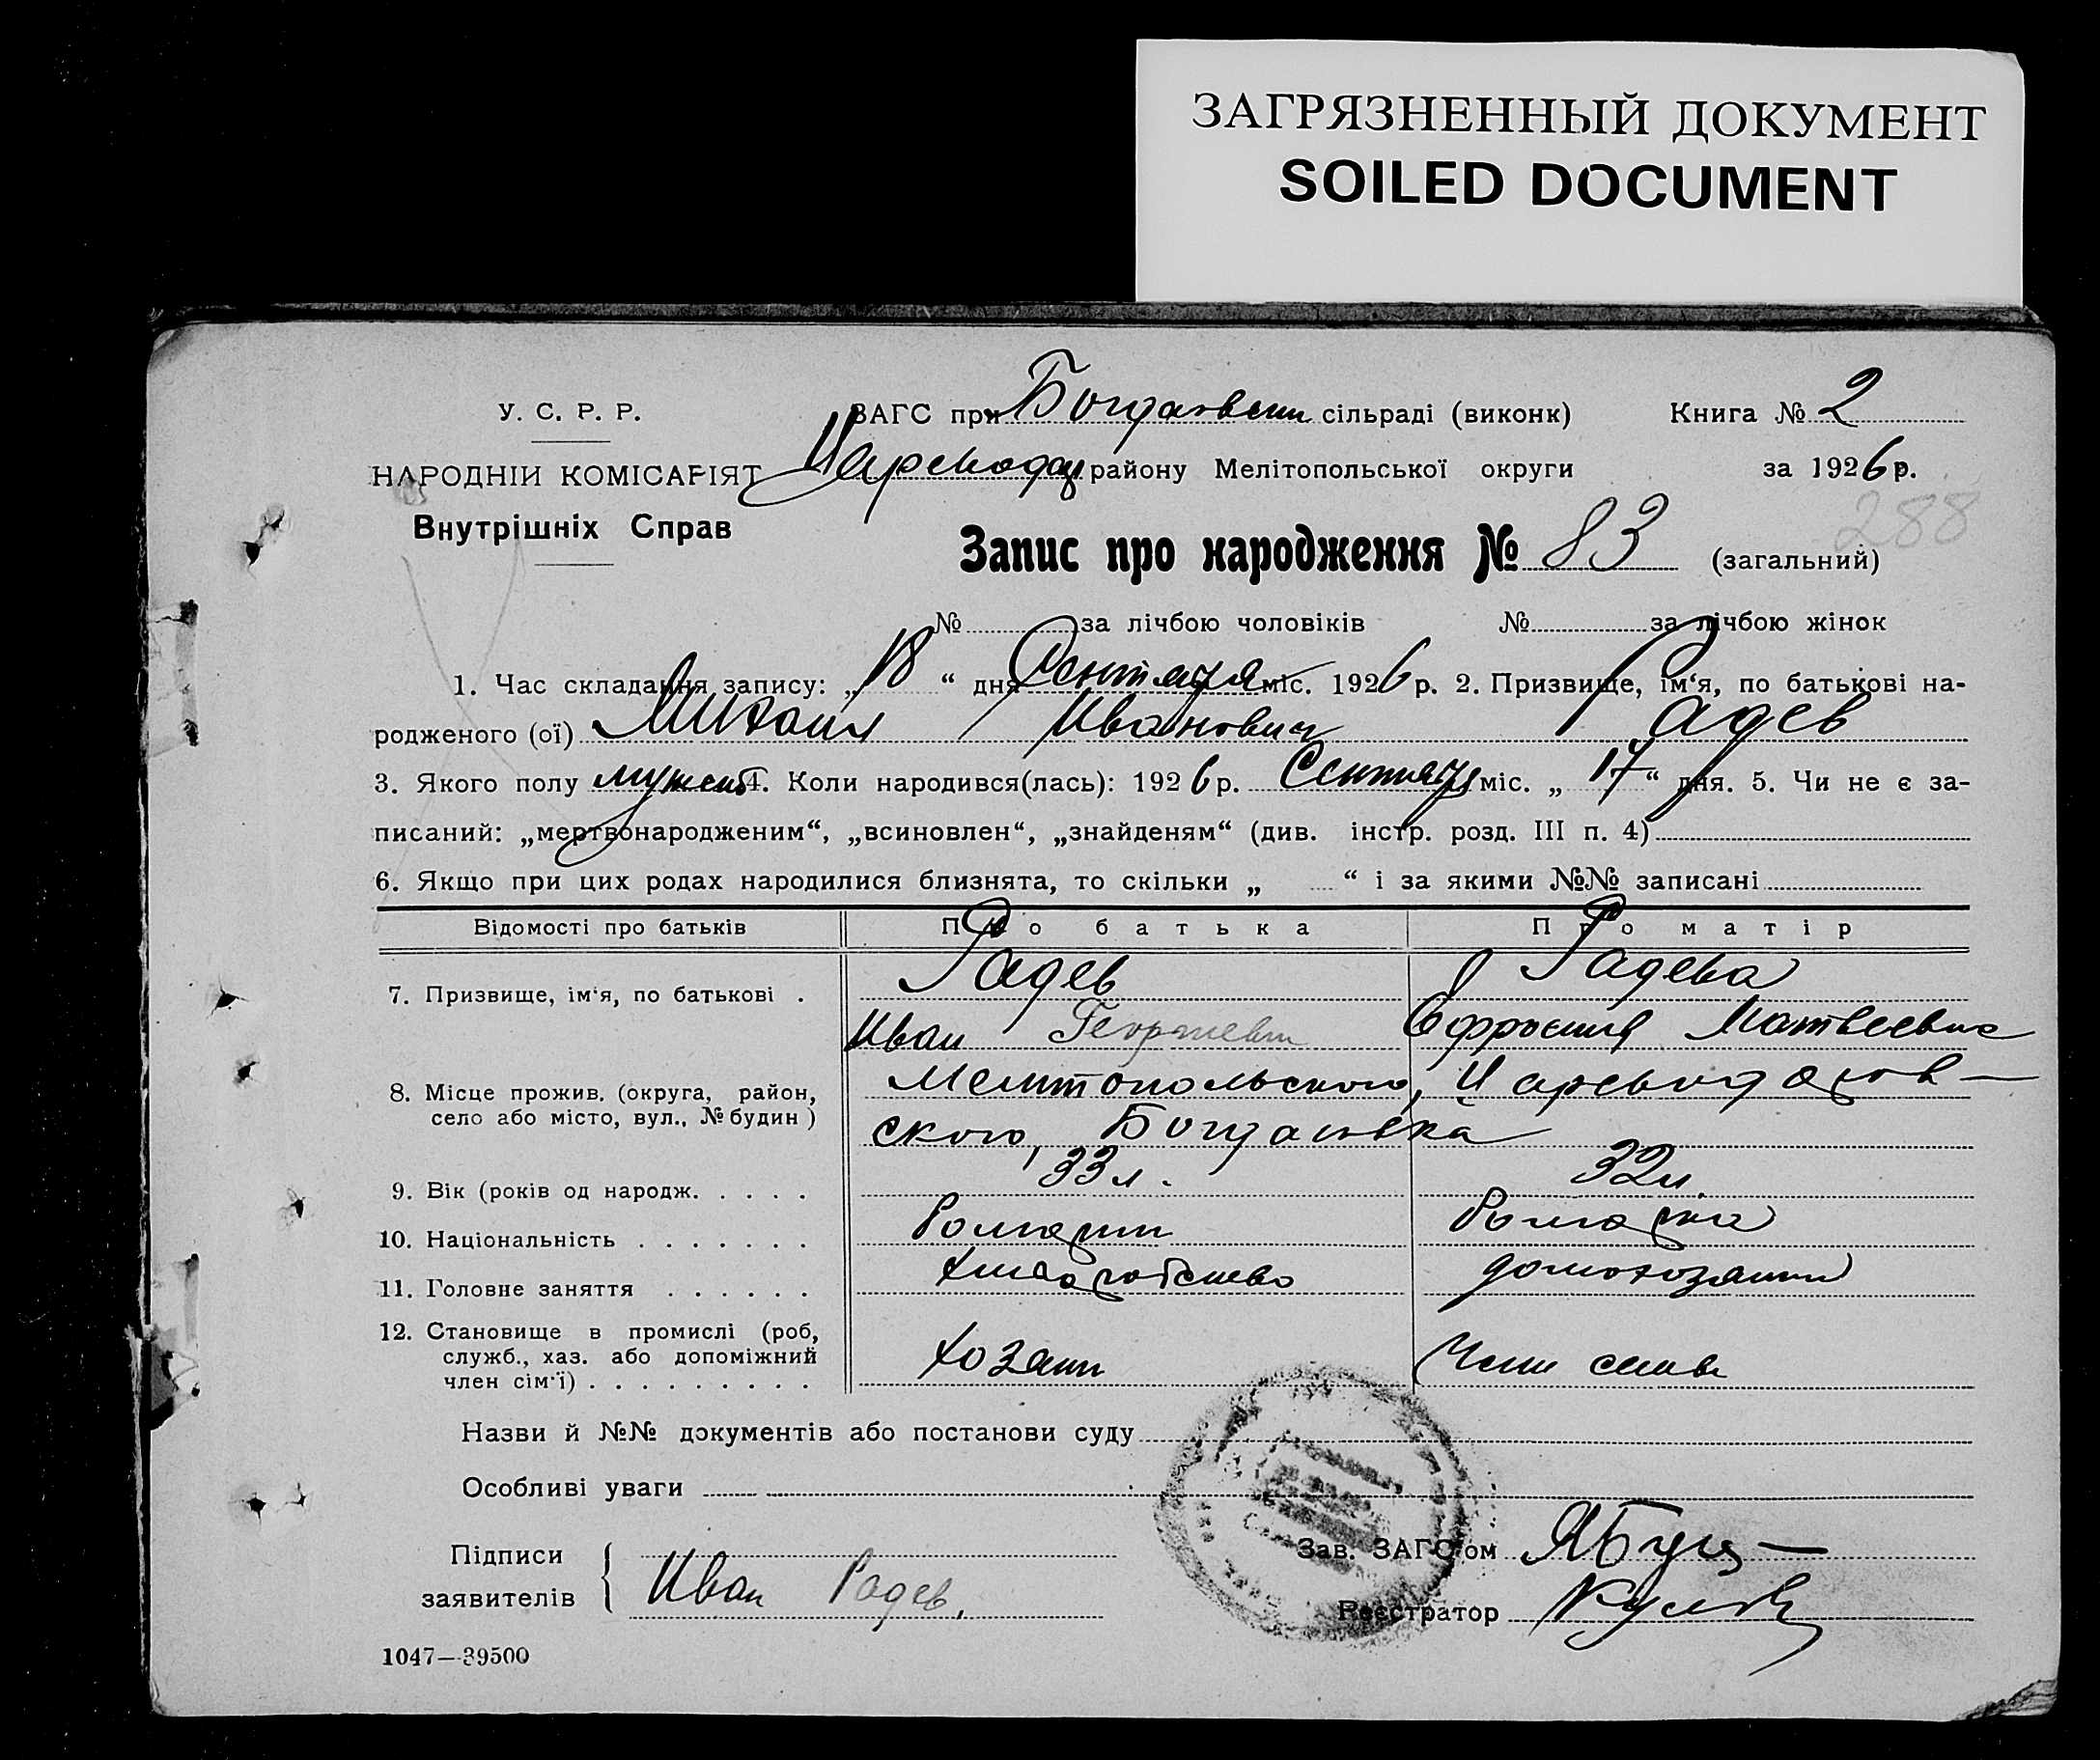 ЗАГРЯЗНЕННЫЙ ДОКУМЕНТ
SOILED DOCUMENT
У. С. Р. Р.
НАРОДНІЙ КОМІСАРІЯТ
Внутрішніх Справ
ЗАГС при сільраді (виконк) Книга № 2
району Мелітопольської округи за 1926 р.
288
Запис про народження № 83 (загальний)
№ за лічбою чоловіків № за лічбою жінок
1. Час складання запису: „ 18 “ дня Сентября міс. 1926 р. 2. Призвище, ім‘я, по батькові на-
родженого (ої) Михаил Иванович Радев
3. Якого полу 4. Коли народився(лась): 1926 р. Сентября міс. „ 17 “ дня. 5. Чи не є за-
писаний: „мертвонародженим“, „всиновлен“, „знайденям“ (див. інстр. розд. III п. 4)
6. Якщо при цих родах народилися близнята, то скільки „ “ і за якими №№ записані
Відомості про батьків Про батька Про матір
7. Призвище, ім‘я, по батькові . Радев Радева
Иван Георгиевич Ефросиния Матвеевна
8. Місце прожив. (округа, район, Мелитопольского, Цареводаров-
село або місто, вул., № будин) ского, Богдановка
9. Вік (років од народж. . . . . 33 л. 32 л.
10. Національність . . . . . . . Болгарин Болгарка
11. Головне заняття . . . . . . хлебопашество домохозяйка
12. Становище в промислі (роб,
служб., хаз. або допоміжний хозяин Член семьи
член сім‘ї) . . . . . . . . .
Назви й №№ документів або постанови суду
Особливі уваги
Підписи
заявителів Иван Радев,
Зав. ЗАГС‘ом
Реєстратор
1047—39500